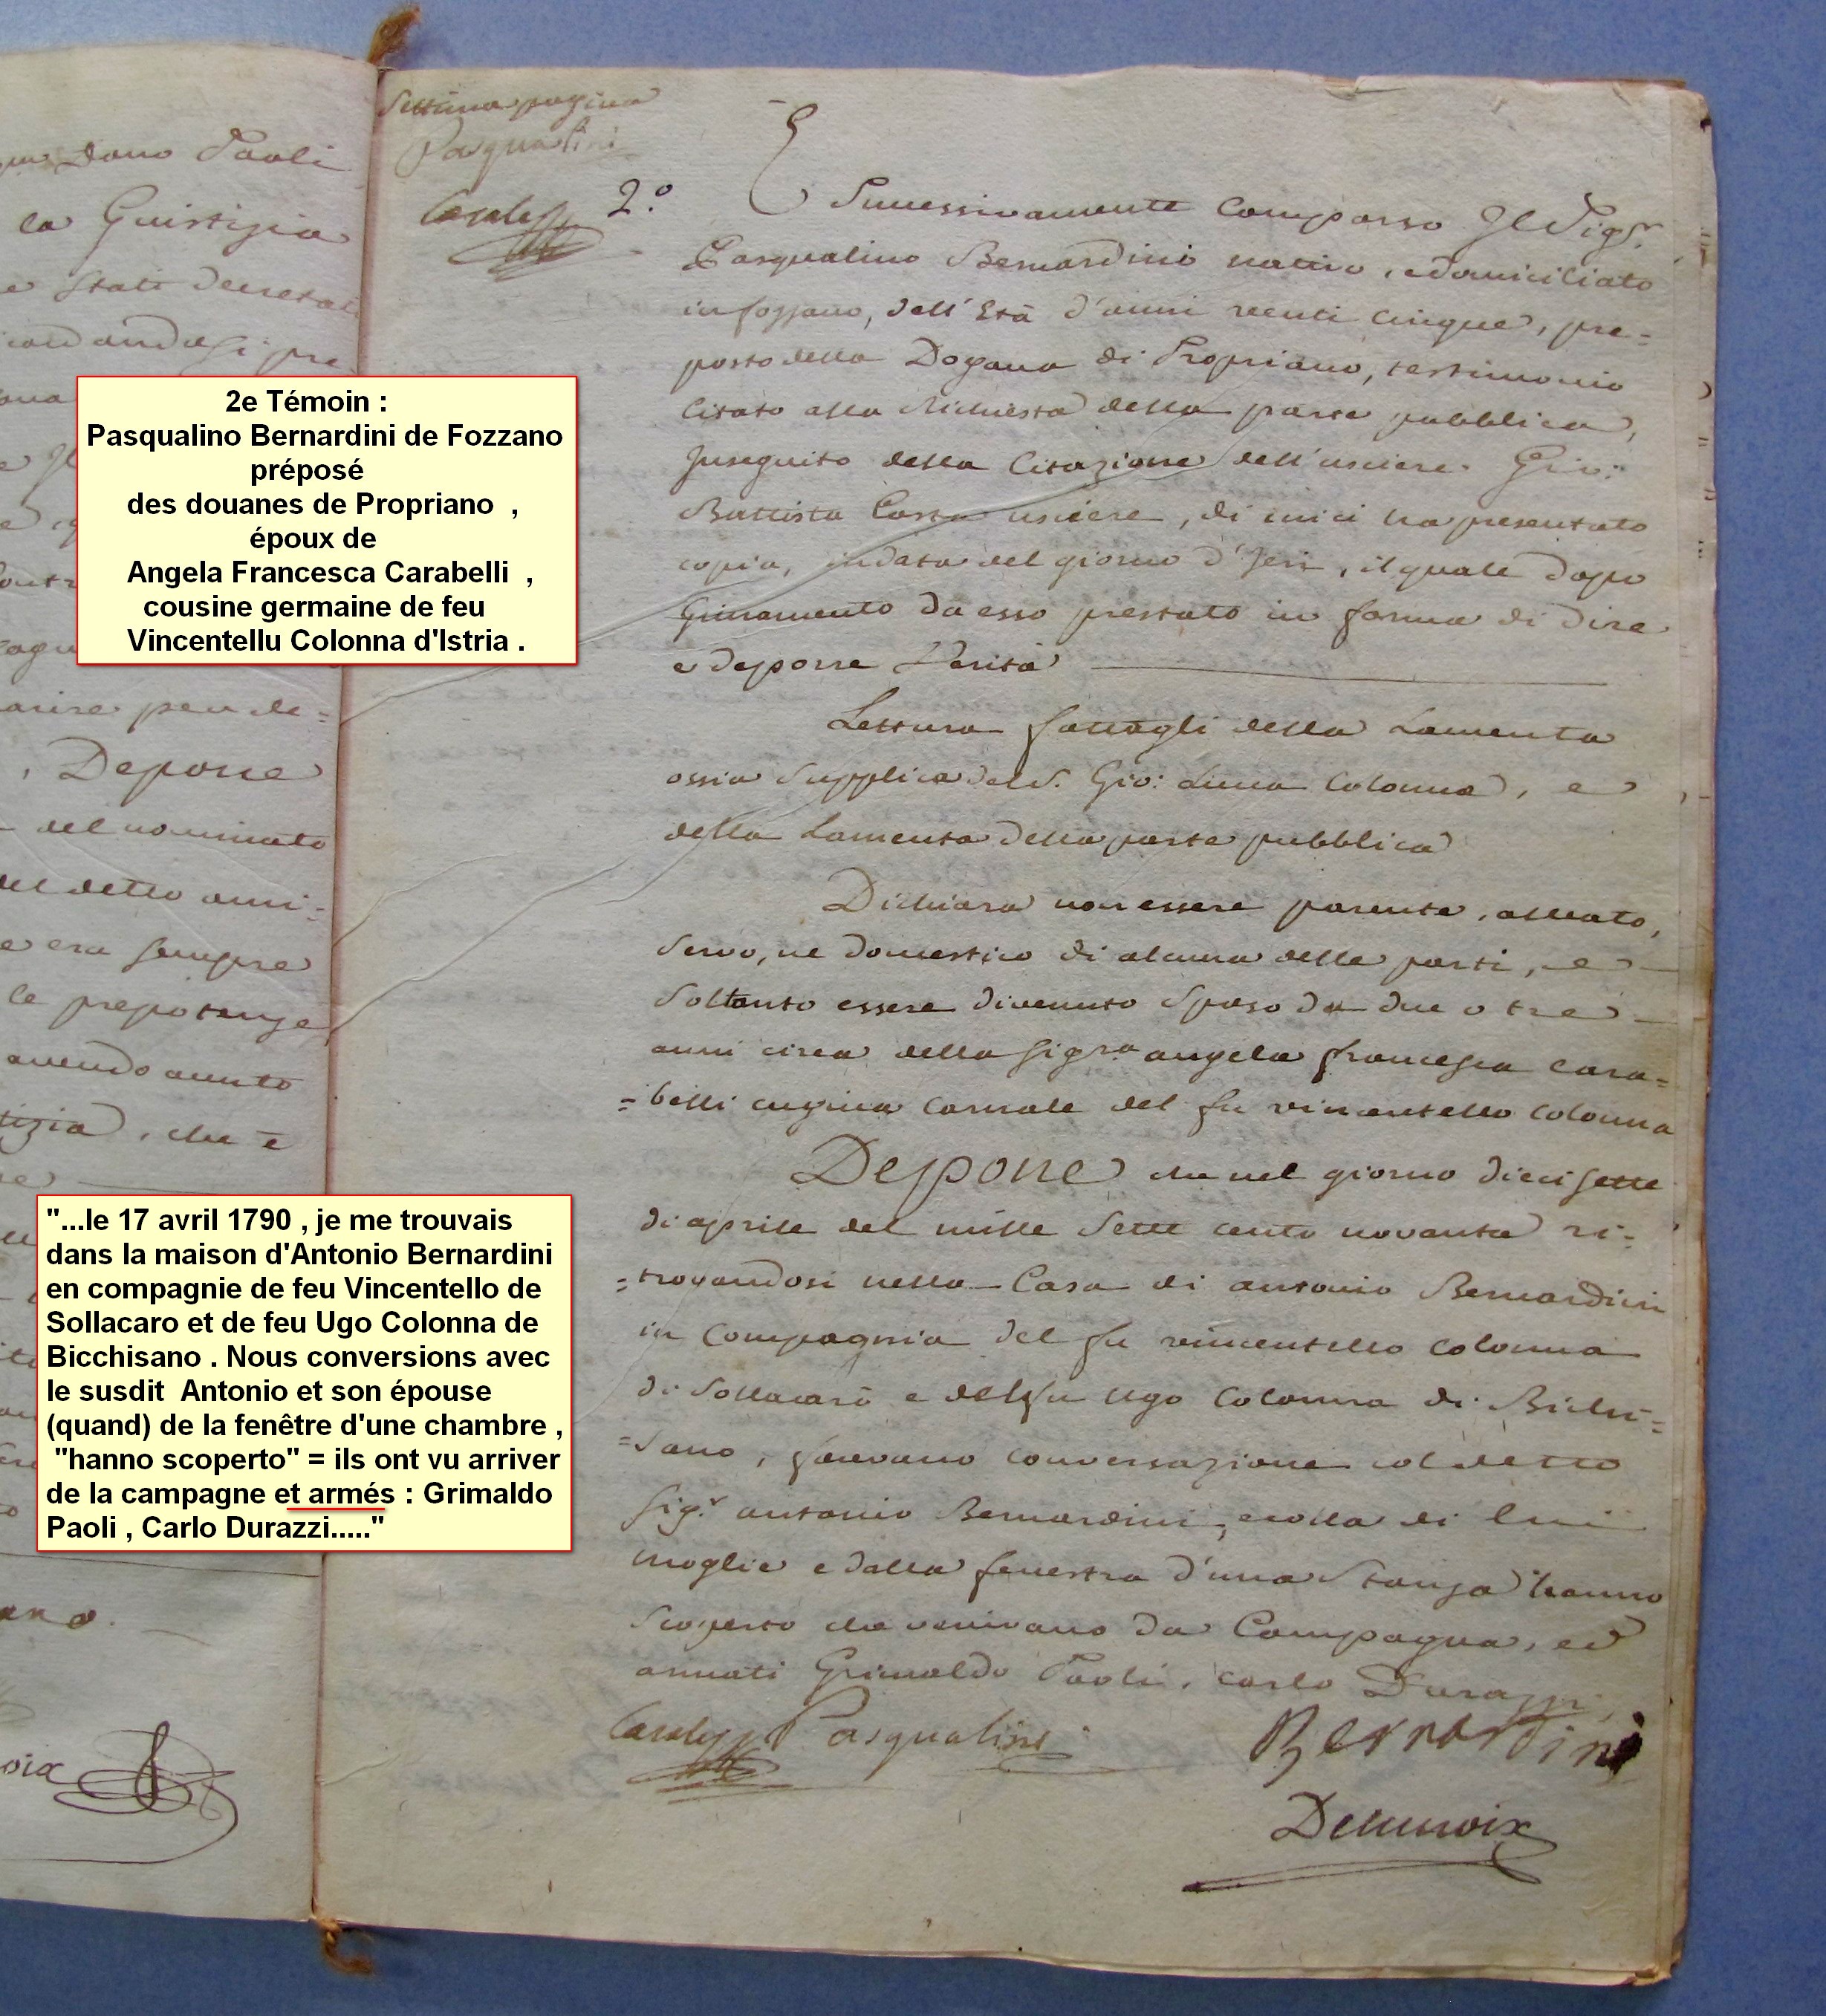 que Dono Paoli
la Guistizia
e stati decretati
pre
ma
arire pen de=
, Depone
del nominato
del detto anni=
e era sempre
le prepotenze
avendo avuto
tizia, che è
Settima pagina
Pasqualini
2.°
E Successivamente Comparso Il Sig.r
Pasqualino Bernardini nativo, e domiciliato
in fozzano, dell'Età d'anni venti Cinque, pre=
posto della Dogana di Propriano, testimonio
Citato alla Richiesta della parte pubblica,
Inseguito della Citazione dell'usciere Gio:
Battista Casta usciere, di cui ci ha presentato
copia, in data del giorno d'Jeri, il quale dopo
Giuramento da esso prestato in forma di dire
e deporre Verità
Lettura fattagli della Lamenta
ossia Supplica del S. Gio: Luca Colonna, e
della Lamenta della parte pubblica
Dichiara non essere parente, alleato,
Servo, ne domestico di alcuna delle parti, e
Soltanto essere divenuto Sposo da due o tre
anni circa della Sig.ra angela francesca Cara=
=belli cugina Carnale del fu vincentello Colonna
Depone che nel giorno diecisette
di aprile del mille Sette cento novanta ri=
=trovandosi nella Casa di antonio Bernardini
in Compagnia del fu vincentello Colonna
di Sollacarò e del fu Ugo Colonna di Bichi=
=sano, facevano conversazione col detto
Sig.r antonio Bernardini, e colla di lui
moglie e dalla fenestra d'una Stanza hanno
Scoperto che venivano da Campagna, ed
armati Grimaldo Paoli, carlo Durazzi
Pasqualini
Bernardini
Delunoix
2e Témoin :
Pasqualino Bernardini de Fozzano
préposé
des douanes de Propriano ,
époux de
Angela Francesca Carabelli ,
cousine germaine de feu
Vincentellu Colonna d'Istria .
"...le 17 avril 1790 , je me trouvais
dans la maison d'Antonio Bernardini
en compagnie de feu Vincentello de
Sollacaro et de feu Ugo Colonna de
Bicchisano . Nous conversions avec
le susdit Antonio et son épouse
(quand) de la fenêtre d'une chambre ,
"hanno scoperto" = ils ont vu arriver
de la campagne et armés : Grimaldo
Paoli , Carlo Durazzi....."